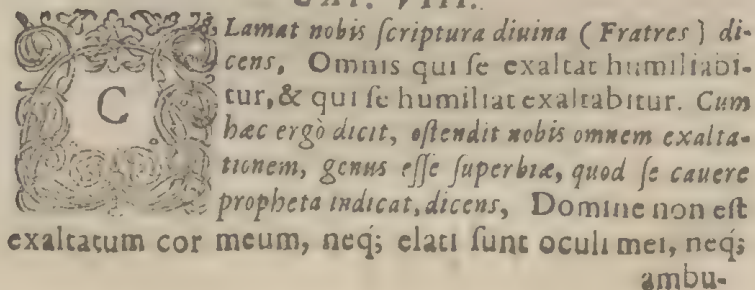 CAP. VIII.
CLamat nobis ſcriptura diuina ( Fratres ) di-
cens, Omnis qui ſe exaltat humiliabi-
tur, & qui ſe humiliat exaltabitur. Cum
hæc ergò dicit, oſtendit nobis omnem exalta-
tionem, genus eſſe ſuperbiæ, quod ſe cauere
propheta indicat, dicens, Domine non eſt
exaltatum cor meum, neq́; elati ſunt oculi mei, neq́;
ambu-